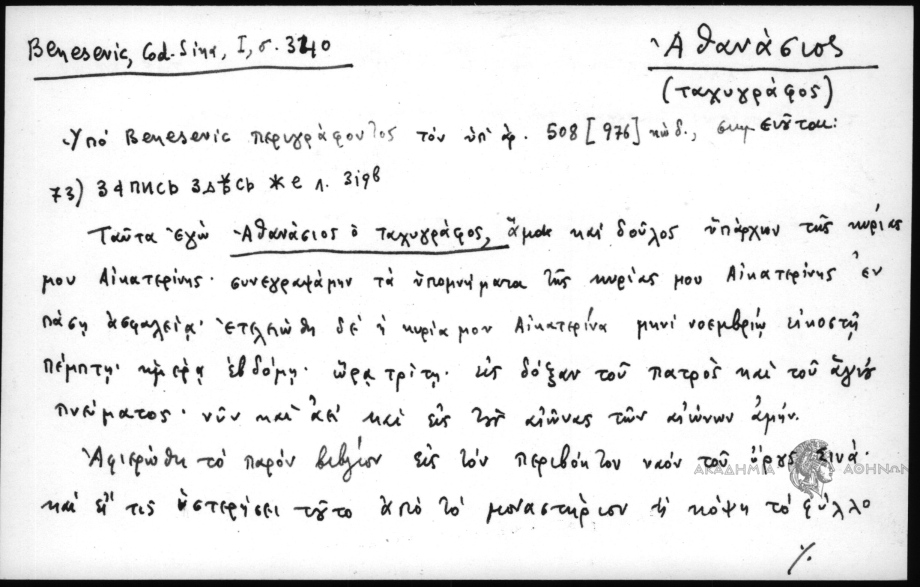 Benesevic, Cod. Sina, I, σ. 340
Ἀθανάσιος
(ταχυγράφος)
Ὑπό Benesevic περιγράφοντος τόν ὑπ' ἀρ. 508 [976] κώδ., σημ. εὕρηται:
73) ЗАПИСЬ ЗДѢСЬ ЖЕ Л. 319β
Ταῦτα ἐγώ Ἀθανάσιος ὁ ταχυγράφος, ἅμα καί δοῦλος ὑπάρχων τῆς κυρίας
μου Αἰκατερίνης· συνεγραψάμην τά ὑπομνήματα τῆς κυρίας μου Αἰκατερίνης ἐν
πάσῃ ἀσφαλείᾳ· ἐτελειώθη δέ ἡ κυρία μου Αἰκατερίνα μηνί νοεμβρίῳ εἰκοστῇ
πέμπτῃ· ἡμέρᾳ ἑβδόμῃ· ὥρᾳ τρίτῃ· εἰς δόξαν τοῦ πατρὸς καὶ τοῦ ἁγίου
πνεύματος· νῦν καὶ ἀεί καὶ εἰς τοὺς αἰῶνας τῶν αἰώνων ἀμήν.
Ἀφιερώθη τό παρόν βιβλίον εἰς τόν περιβόητον ναόν τοῦ ὄρους Σινᾶ·
καί εἴ τις ὑστερήσει τοῦτο ἀπό τό μοναστήριον ἤ κόψῃ τό φύλλο
ΑΚΑΔΗΜΙΑ ΑΘΗΝΩΝ
%